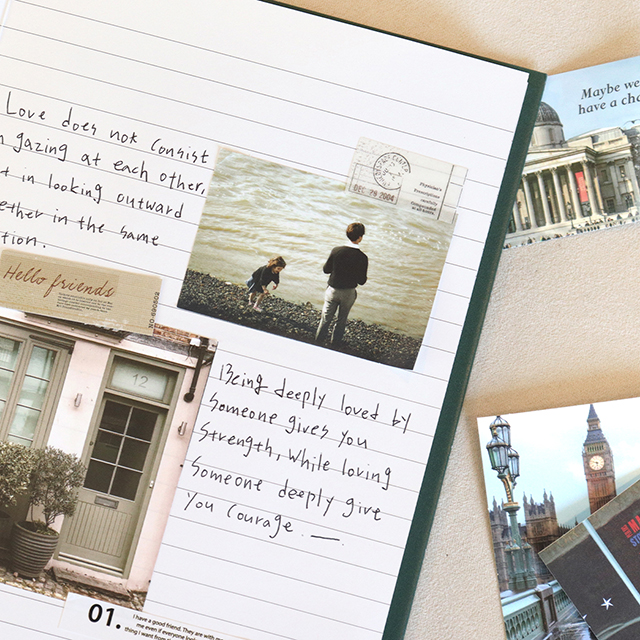 Love does not consist
gazing at each other,
in looking outward
in the same
Hello friends
DEC 29 2004
Physician's
Maybe we
have a cha
12
Being deeply loved by
someone gives you
strength, while loving
someone deeply give
you courage. —.
01.
I have a good friend. They are with
me even if everyone
thing I want from